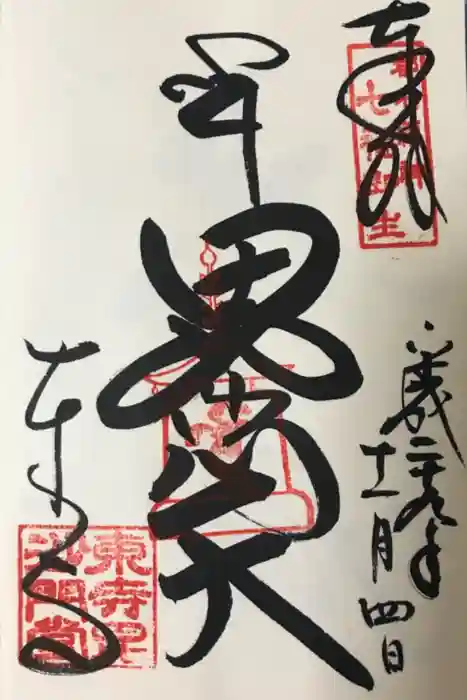 奉拝
七福即生
平成二十九年
十一月四日
毘沙門天
東寺
東寺毘
沙門堂